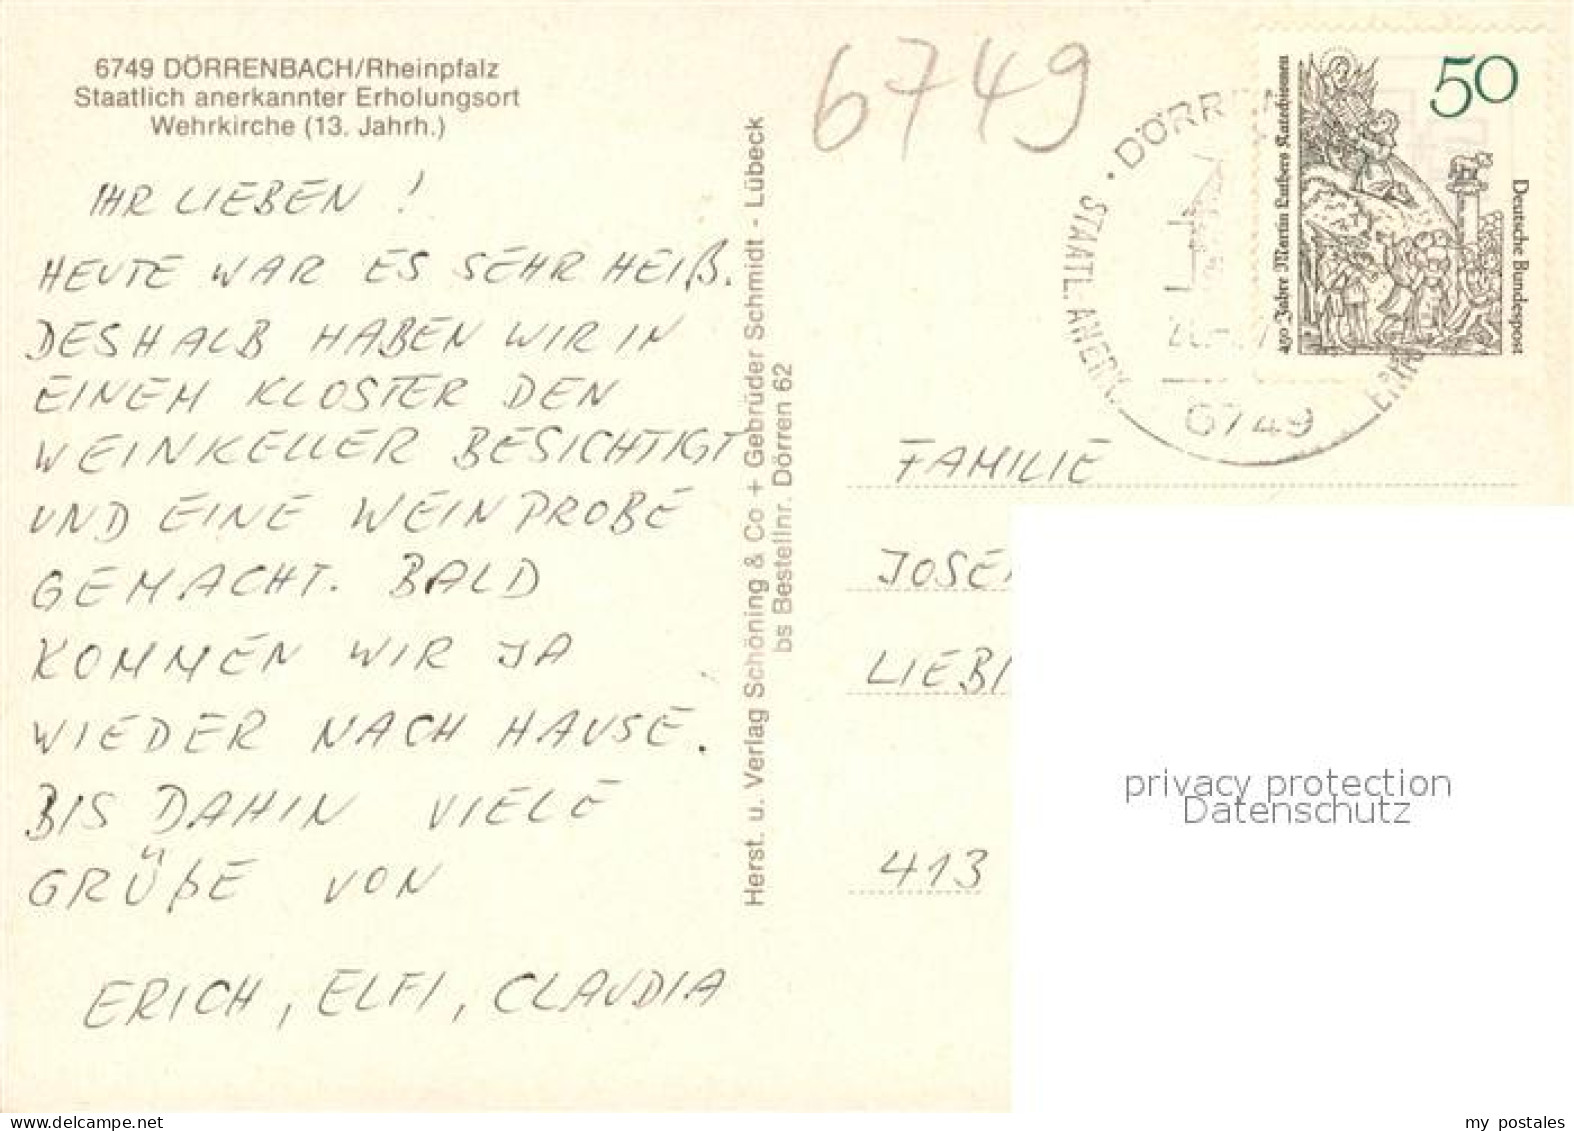 6749 DÖRRENBACH/Rheinpfalz
Staatlich anerkannter Erholungsort
Wehrkirche (13. Jahrh.)
IHR LIEBEN !
HEUTE WAR ES SEHR HEIß.
DESHALB HABEN WIR IN
EINEM KLOSTER DEN
WEINKELLER BESICHTIGT
UND EINE WEINPROBE
GEMACHT. BALD
KOMMEN WIR JA
WIEDER NACH HAUSE.
BIS DAHIN VIELE
GRÜßE VON
ERICH, ELFI, CLAUDIA
Herst. u. Verlag Schöning & Co + Gebrüder Schmidt - Lübeck
bs Bestellnr. Dörren 62
6749
DÖRR
STAATL. ANERK.
6749
50
450 Jahre Martin Luthers Katechismen
Deutsche Bundespost
FAMILIE
JOSE
LIEBI
413
privacy protection
Datenschutz
delcampe.net
my postales